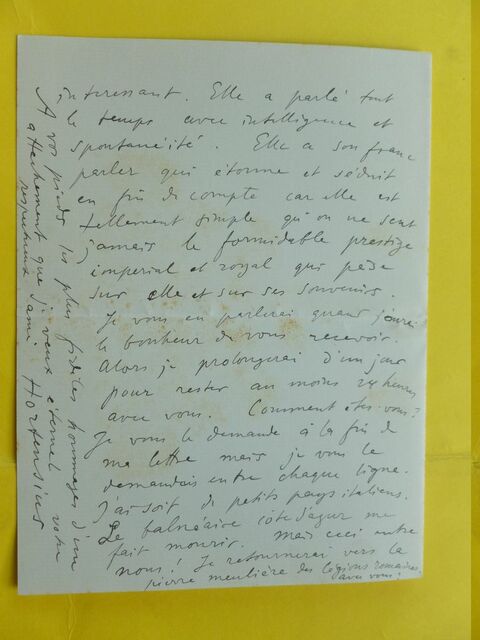 intéressant. Elle a parlé tout
le temps avec intelligence et
spontanéité. Elle a son franc
parler qui étonne et séduit
en fin de compte car elle est
tellement simple qu'on ne sent
jamais le formidable prestige
impérial et royal qui pèse
sur elle et sur ses souvenirs.
Je vous en parlerai quand j'aurai
le bonheur de vous recevoir.
Alors je prolongerai d'un jour
pour rester au moins 24 heures
avec vous. Comment êtes-vous?
Je vous le demande à la fin de
ma lettre mais je vous le
demandais entre chaque ligne.
J'ai soif de petits pays italiens.
Le balnéaire côte d'azur me
fait mourir. Mais ceci entre
nous! Je retournerai vers la
pierre meulière des légions romaines.
avec vous?
A vos pieds les plus fidèles hommages d'un
attachement que je veux éternel votre
respectueux ami Hortensius